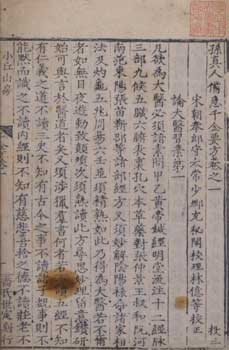 孫真人備急千金要方卷之一
宋朝奉郎守太常少卿充秘閣校理林億等校正
論大醫習業第一
凡欲為大醫必須諳素問甲乙黃帝鍼經明堂流注十二經脉
三部九候五臟六腑表裏孔穴本草藥對張仲景王叔和阮河
南范東陽張苗靳邵等諸部經方又須妙解陰陽祿命諸家相
法及灼龜五兆周易六壬並須精熟如此乃得為大醫若不爾
者如無目夜遊動致顛殞次須熟讀此方尋思妙理留意鑽研
始可與言於醫道者矣又須涉獵羣書何者若不讀五經不知
有仁義之道不讀三史不知有古今之事不讀諸子覩事則不
能默而識之不讀內經則不知有慈悲喜捨之德不讀莊老
小丘山房